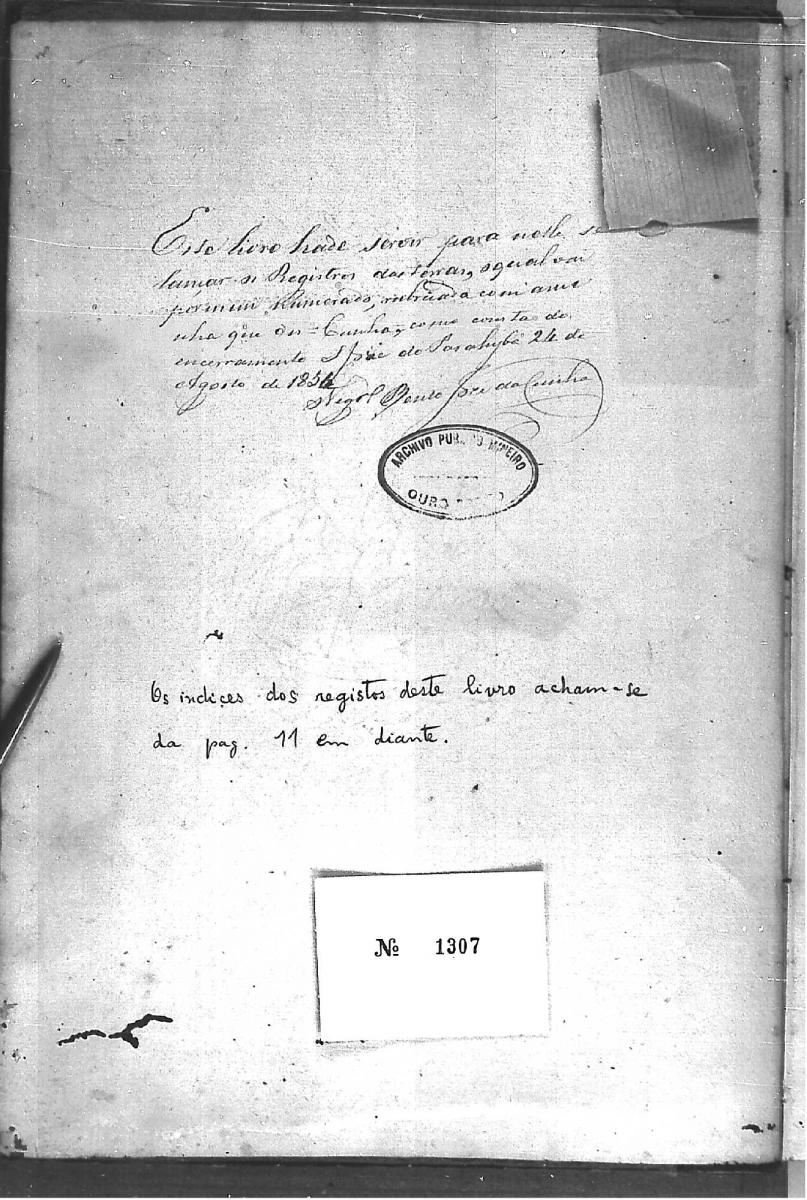 Este livro hade servir para nelle se
lançar os Registros das terras, o qual vai
por mim Numerado, rubricado com a mi
nha que diz = Cunha, e como consta do
encerramento S José do Parahyba 24 de
Agosto de 1854
José da Cunha
ARCHIVO PUBLICO MINEIRO
OURO PRETO
Os indices dos registos deste livro acham-se
da pag. 11 em diante.
Nº 1307